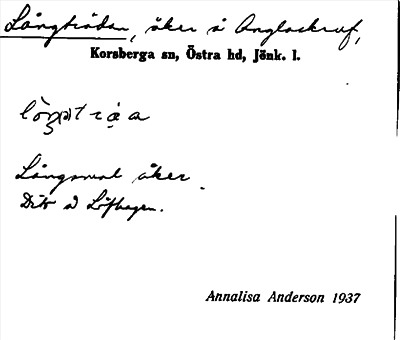 Långträdan, åker å Anglaskruf,
Korsberga sn, Östra hd, Jönk. l.
Långsmal åker.
Dito å Löfhagen.
Annalisa Anderson 1937